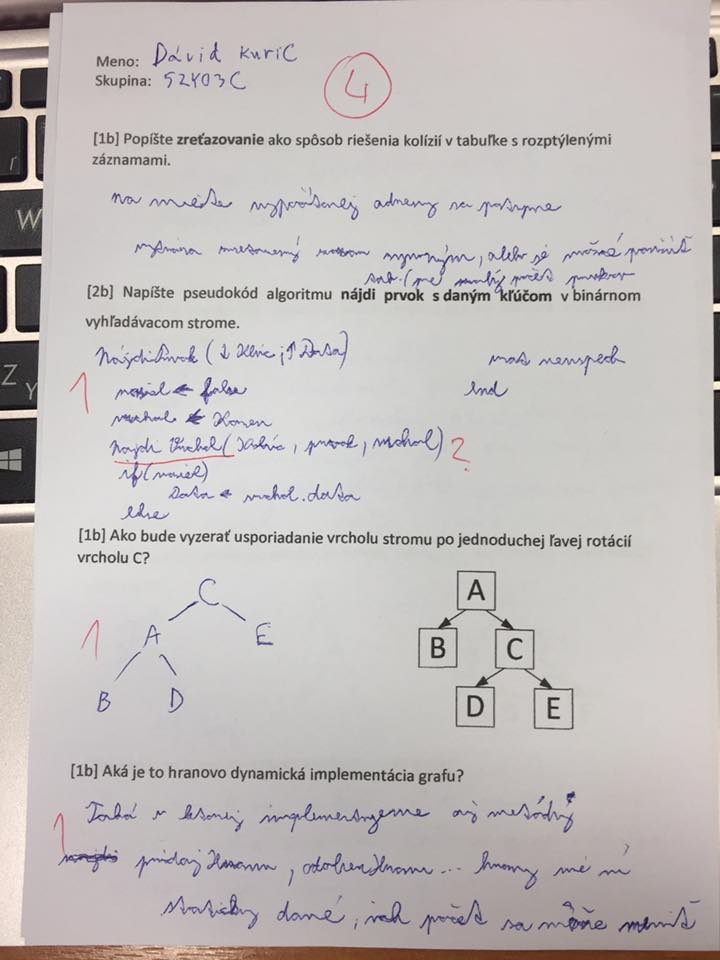 Meno: Dávid Kuric
Skupina: 5ZY03C
4
[1b] Popíšte zreťazovanie ako spôsob riešenia kolízií v tabuľke s rozptýlenými
záznamami.
na mieste vypočítanej adresy sa postupne
vytvára zoznam synoným, alebo je možné použiť
[2b] Napíšte pseudokód algoritmu nájdi prvok s daným kľúčom v binárnom
vyhľadávacom strome.
NájdiPrvok (↓ Kľúč ;↑ Data)
vráť neúspech
1
našiel ← false
End
vrchol ← Koreň
Nájdi Vrchol ( Kľúč , prvok , vrchol) ?
if (našiel)
Data ← vrchol.data
else
[1b] Ako bude vyzerať usporiadanie vrcholu stromu po jednoduchej ľavej rotácií
vrcholu C?
C
A
A
E
1
B
C
B
D
D
E
[1b] Aká je to hranovo dynamická implementácia grafu?
Taká v ktorej implementujeme aj metódy
1
pridajHranu, odoberHranu... hrany nie sú
staticky dané, ich počet sa môže meniť